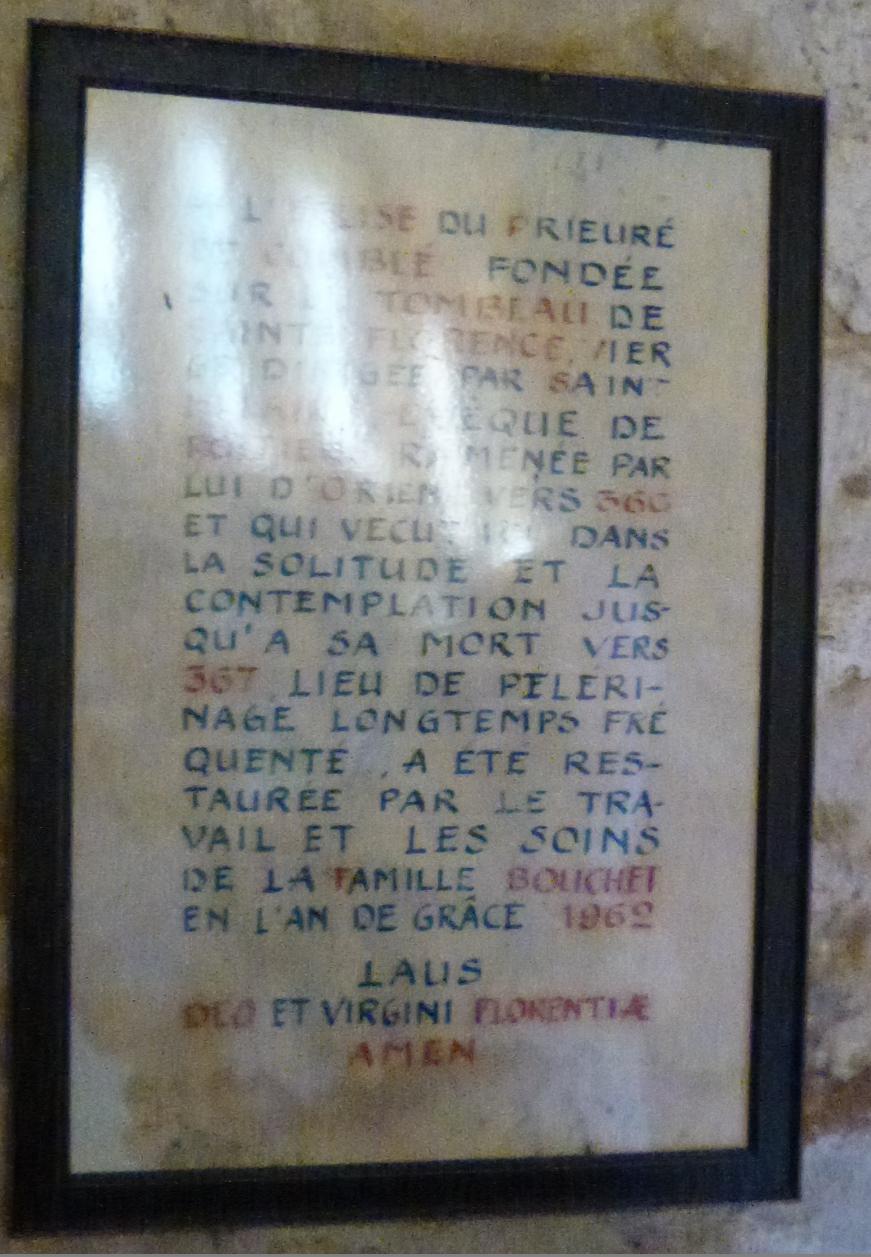 L'ÉGLISE DU PRIEURÉ
FONDÉE
SUR LE TOMBEAU DE
SAINTE FLORENCE, VIER
GE DIRIGÉE PAR SAINT-
HILAIRE EVÊQUE DE
POITIERS RAMENÉE PAR
LUI D'ORIENT VERS 360
ET QUI VÉCUT ICI DANS
LA SOLITUDE ET LA
CONTEMPLATION JUS-
QU'A SA MORT VERS
367 LIEU DE PÈLERI-
NAGE LONGTEMPS FRÉ
QUENTÉ, A ÉTÉ RES-
TAURÉE PAR LE TRA-
VAIL ET LES SOINS
DE LA FAMILLE BOUCHET
EN L'AN DE GRÂCE 1962
LAUS
DEO ET VIRGINI FLORENTIÆ
AMEN